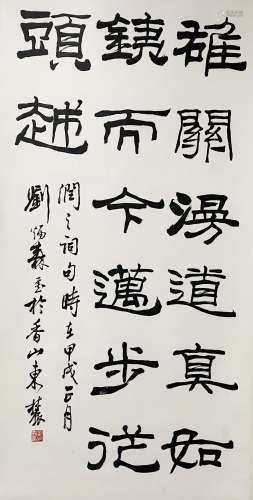 雄關漫道真如
銕而今邁步從
頭越
潤之詞句時在甲戌正月
劉炳森書於香山東麓